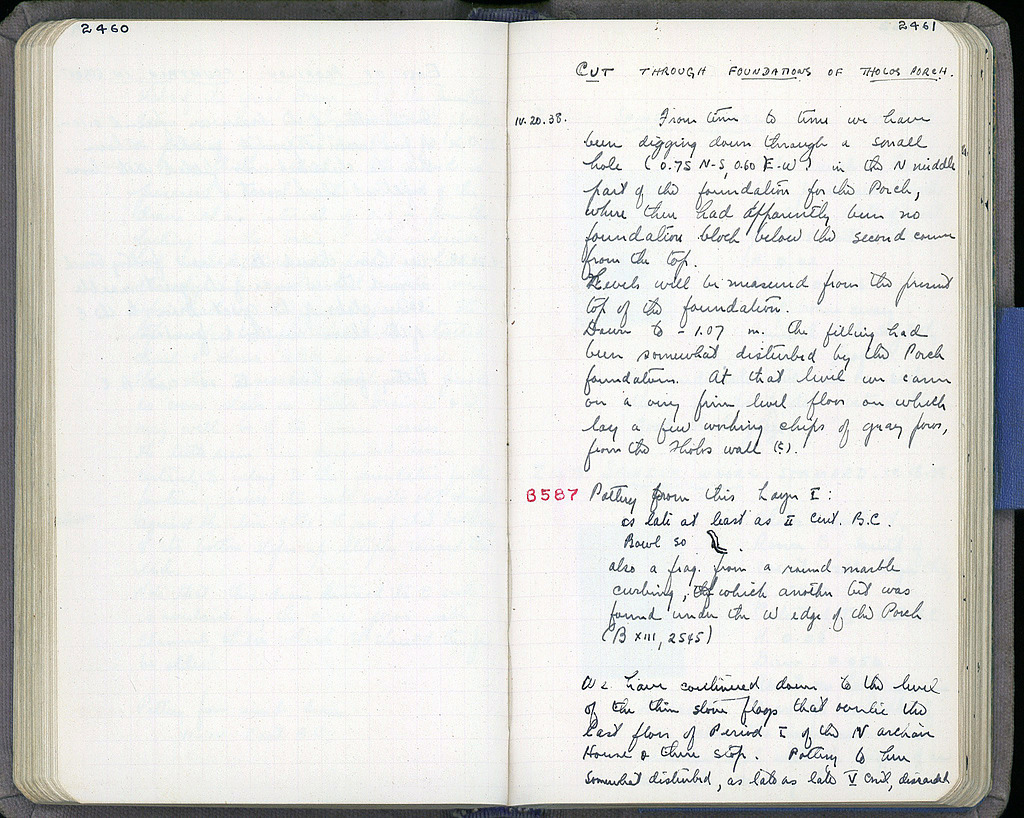 2460
2461
CUT THROUGH FOUNDATIONS OF THOLOS PORCH.
IV.20.38.
From time to time we have
been digging down through a small
hole (0.75 N-S, 0.60 E-W) in the N middle
part of the foundation for the Porch,
where there had apparently been no
foundation block below the second course
from the top.
Levels will be measured from the present
top of the foundation.
Down to - 1.07 m. the filling had
been somewhat disturbed by the Porch
foundation. At that level we came
on a very firm level floor on which
lay a few working chips of gray poros,
from the Tholos wall (?).
B587 Pottery from this Layer I:
as late at least as II Cent. B.C.
Bowl so .
also a frag. from a round marble
curbing, of which another bit was
found under the W edge of the Porch
(B XIII, 2545)
We have continued down to the level
of the thin stone flags that overlie the
last floor of Period I of the N archaic
House & there stop. Pottery to here
somewhat disturbed, as late as late V Cent, discarded